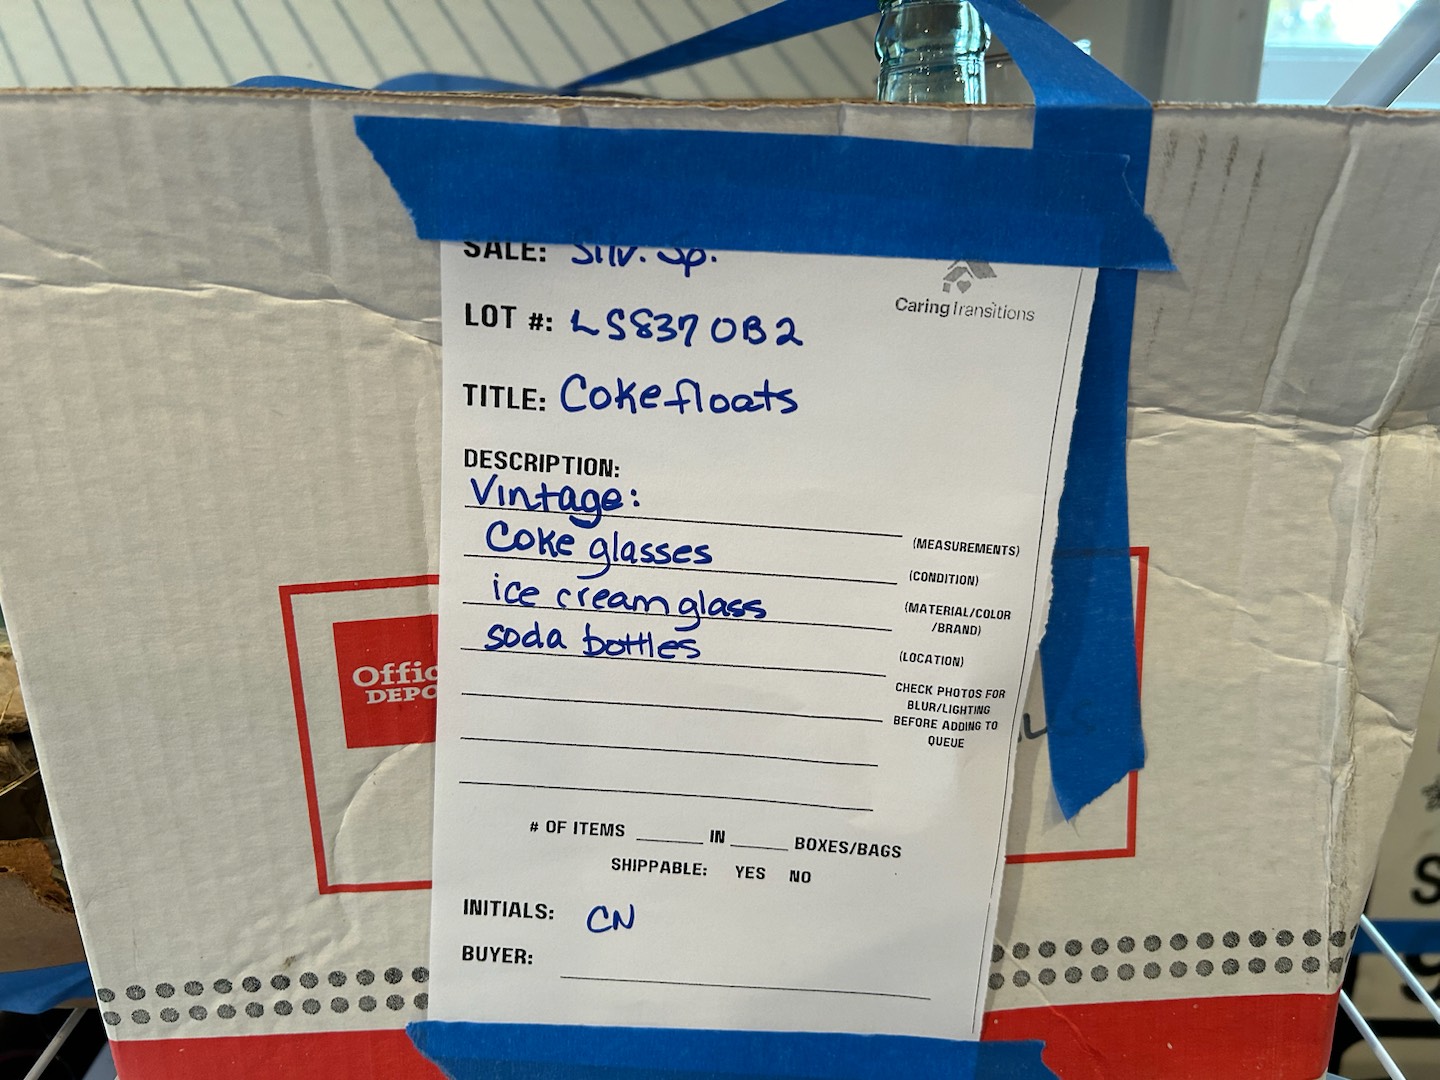 SALE: Silv. Sp.
CaringTransitions
LOT #: LS837 OB2
TITLE: Coke floats
DESCRIPTION:
Vintage:
(MEASUREMENTS)
Coke glasses
(CONDITION)
ice cream glass
(MATERIAL/COLOR
/BRAND)
soda bottles
(LOCATION)
CHECK PHOTOS FOR
BLUR/LIGHTING
BEFORE ADDING TO
QUEUE
# OF ITEMS ______ IN _____ BOXES/BAGS
SHIPPABLE: YES NO
INITIALS: CN
BUYER:
Offic
DEPO